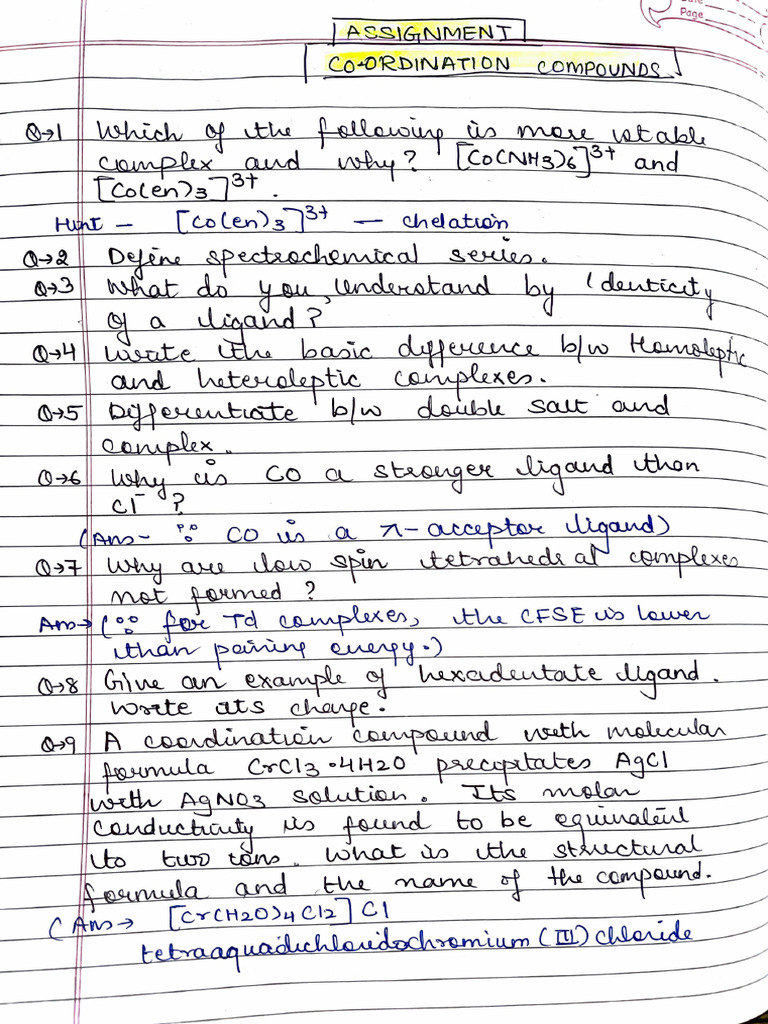 Date
Page
ASSIGNMENT
CO-ORDINATION COMPOUNDS
Q→1 Which of the following is more stable
complex and why? [Co(NH3)6]3+ and
[Co(en)3]3+.
Hint - [Co(en)3]3+ — chelation
Q→2 Define spectrochemical series.
Q→3 What do you understand by 'denticity
of a ligand?
Q→4 Write the basic difference b/w Homoleptic
and heteroleptic complexes.
Q→5 Differentiate b/w double salt and
complex.
Q→6 Why is CO a stronger ligand than
Cl- ?
(Ans- ∵ CO is a π-acceptor ligand)
Q→7 Why are low spin tetrahedral complexes
not formed?
Ans→ (∵ for Td complexes, the CFSE is lower
than pairing energy.)
Q→8 Give an example of hexadentate ligand.
Write its charge.
Q→9 A coordination compound with molecular
formula CrCl3·4H2O precipitates AgCl
with AgNO3 solution. Its molar
conductivity is found to be equivalent
to two ions. What is the structural
formula and the name of the compound.
(Ans→ [Cr(H2O)4Cl2]Cl
tetraaquadichloridochromium(III)chloride